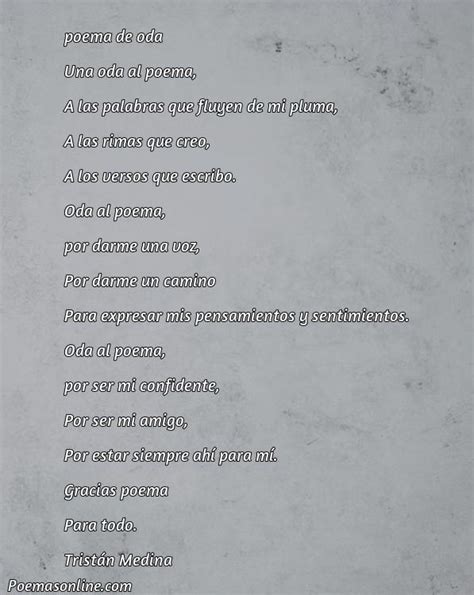 poema de oda
Una oda al poema,
A las palabras que fluyen de mi pluma,
A las rimas que creo,
A los versos que escribo.
Oda al poema,
por darme una voz,
Por darme un camino
Para expresar mis pensamientos y sentimientos.
Oda al poema,
por ser mi confidente,
Por ser mi amigo,
Por estar siempre ahí para mí.
Gracias poema
Para todo.
Tristán Medina
Poemasonline.com